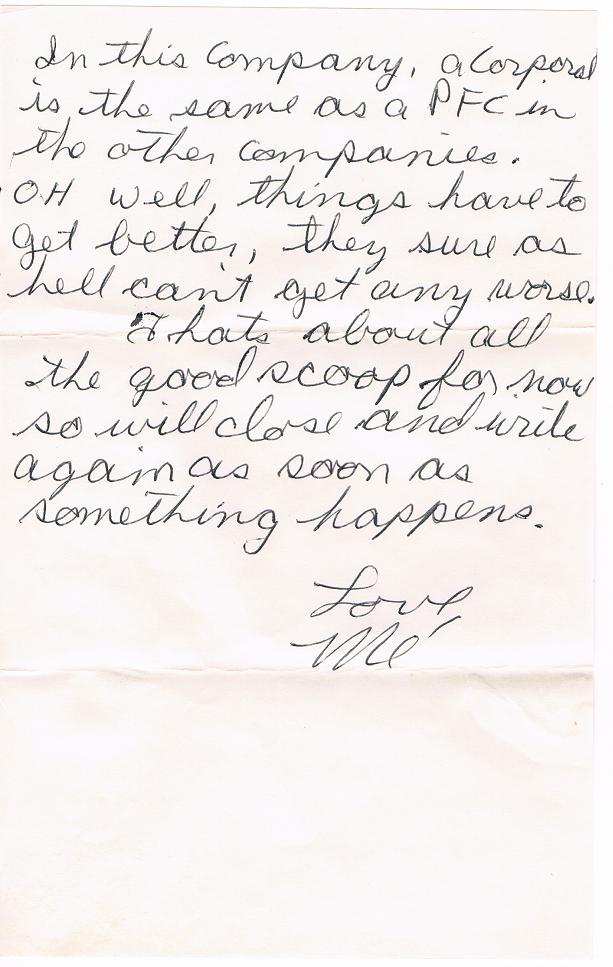 In this Company, a Corporal
is the same as a PFC in
the other Companies.
OH well, things have to
get better, they sure as
hell can't get any worse.
Thats about all
the good scoop for now
so will close and write
again as soon as
something happens.
Love,
Me